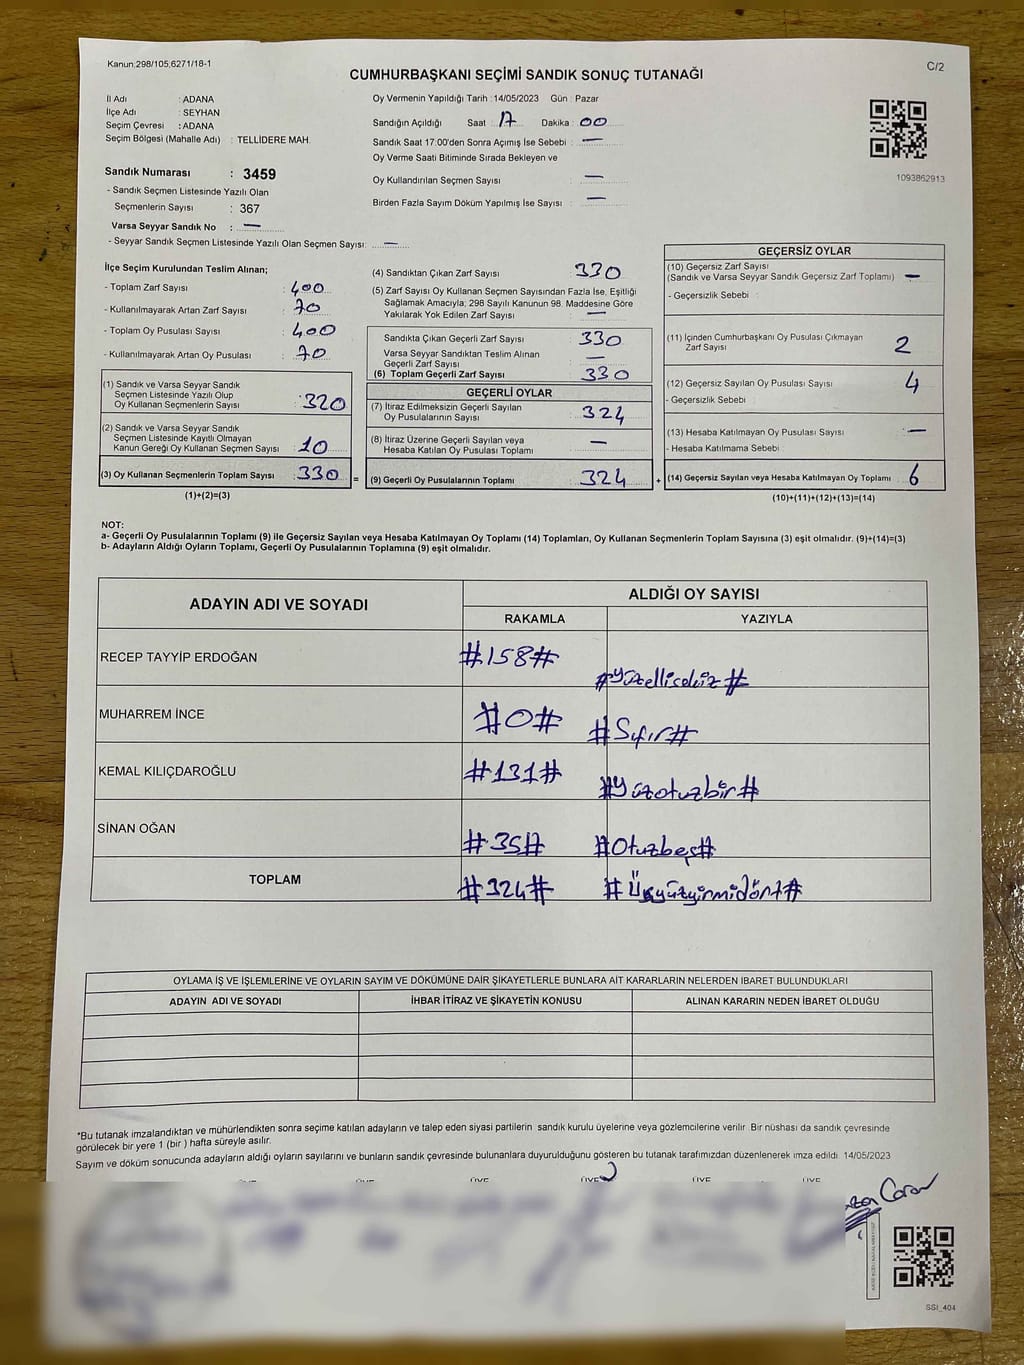 Kanun;298/105,6271/18-1
C/2
CUMHURBAŞKANI SEÇİMİ SANDIK SONUÇ TUTANAĞI
İl Adı : ADANA
İlçe Adı : SEYHAN
Seçim Çevresi : ADANA
Seçim Bölgesi (Mahalle Adı) : TELLİDERE MAH.
Sandık Numarası : 3459
- Sandık Seçmen Listesinde Yazılı Olan
Seçmenlerin Sayısı : 367
Varsa Seyyar Sandık No : —
- Seyyar Sandık Seçmen Listesinde Yazılı Olan Seçmen Sayısı: —
Oy Vermenin Yapıldığı Tarih : 14/05/2023 Gün : Pazar
Sandığın Açıldığı Saat : 17 Dakika : 00
Sandık Saat 17:00'den Sonra Açımış İse Sebebi : —
Oy Verme Saati Bitiminde Sırada Bekleyen ve
Oy Kullandırılan Seçmen Sayısı : —
Birden Fazla Sayım Döküm Yapılmış İse Sayısı : —
1093862913
İlçe Seçim Kurulundan Teslim Alınan;
- Toplam Zarf Sayısı : 400
- Kullanılmayarak Artan Zarf Sayısı : 70
- Toplam Oy Pusulası Sayısı : 400
- Kullanılmayarak Artan Oy Pusulası : 70
(1) Sandık ve Varsa Seyyar Sandık
Seçmen Listesinde Yazılı Olup
Oy Kullanan Seçmenlerin Sayısı : 320
(2) Sandık ve Varsa Seyyar Sandık
Seçmen Listesinde Kayıtlı Olmayan
Kanun Gereği Oy Kullanan Seçmen Sayısı : 10
(3) Oy Kullanan Seçmenlerin Toplam Sayısı : 330 =
(1)+(2)=(3)
(4) Sandıktan Çıkan Zarf Sayısı : 330
(5) Zarf Sayısı Oy Kullanan Seçmen Sayısından Fazla İse, Eşitliği
Sağlamak Amacıyla; 298 Sayılı Kanunun 98. Maddesine Göre
Yakılarak Yok Edilen Zarf Sayısı : —
Sandıkta Çıkan Geçerli Zarf Sayısı : 330
Varsa Seyyar Sandıktan Teslim Alınan
Geçerli Zarf Sayısı : —
(6) Toplam Geçerli Zarf Sayısı : 330
GEÇERLİ OYLAR
(7) İtiraz Edilmeksizin Geçerli Sayılan
Oy Pusulalarının Sayısı : 324
(8) İtiraz Üzerine Geçerli Sayılan veya
Hesaba Katılan Oy Pusulası Toplamı : —
(9) Geçerli Oy Pusulalarının Toplamı : 324 +
GEÇERSİZ OYLAR
(10) Geçersiz Zarf Sayısı
(Sandık ve Varsa Seyyar Sandık Geçersiz Zarf Toplamı) : —
- Geçersizlik Sebebi :
(11) İçinden Cumhurbaşkanı Oy Pusulası Çıkmayan
Zarf Sayısı : 2
(12) Geçersiz Sayılan Oy Pusulası Sayısı : 4
- Geçersizlik Sebebi :
(13) Hesaba Katılmayan Oy Pusulası Sayısı : —
- Hesaba Katılmama Sebebi :
(14) Geçersiz Sayılan veya Hesaba Katılmayan Oy Toplamı : 6
(10)+(11)+(12)+(13)=(14)
NOT:
a- Geçerli Oy Pusulalarının Toplamı (9) ile Geçersiz Sayılan veya Hesaba Katılmayan Oy Toplamı (14) Toplamları, Oy Kullanan Seçmenlerin Toplam Sayısına (3) eşit olmalıdır. (9)+(14)=(3)
b- Adayların Aldığı Oyların Toplamı, Geçerli Oy Pusulalarının Toplamına (9) eşit olmalıdır.
ADAYIN ADI VE SOYADI
ALDIĞI OY SAYISI
RAKAMLA YAZIYLA
RECEP TAYYİP ERDOĞAN #158# #Yüzellisekiz#
MUHARREM İNCE #0# #Sıfır#
KEMAL KILIÇDAROĞLU #131# #Yüzotuzbir#
SİNAN OĞAN #35# #Otuzbeş#
TOPLAM #324# #Üçyüzyirmidört#
OYLAMA İŞ VE İŞLEMLERİNE VE OYLARIN SAYIM VE DÖKÜMÜNE DAİR ŞİKAYETLERLE BUNLARA AİT KARARLARIN NELERDEN İBARET BULUNDUKLARI
ADAYIN ADI VE SOYADI İHBAR İTİRAZ VE ŞİKAYETİN KONUSU ALINAN KARARIN NEDEN İBARET OLDUĞU
*Bu tutanak imzalandıktan ve mühürlendikten sonra seçime katılan adayların ve talep eden siyasi partilerin sandık kurulu üyelerine veya gözlemcilerine verilir. Bir nüshası da sandık çevresinde
görülecek bir yere 1 (bir ) hafta süreyle asılır.
Sayım ve döküm sonucunda adayların aldığı oyların sayılarını ve bunların sandık çevresinde bulunanlara duyurulduğunu gösteren bu tutanak tarafımızdan düzenlenerek imza edildi. 14/05/2023
SSI_404